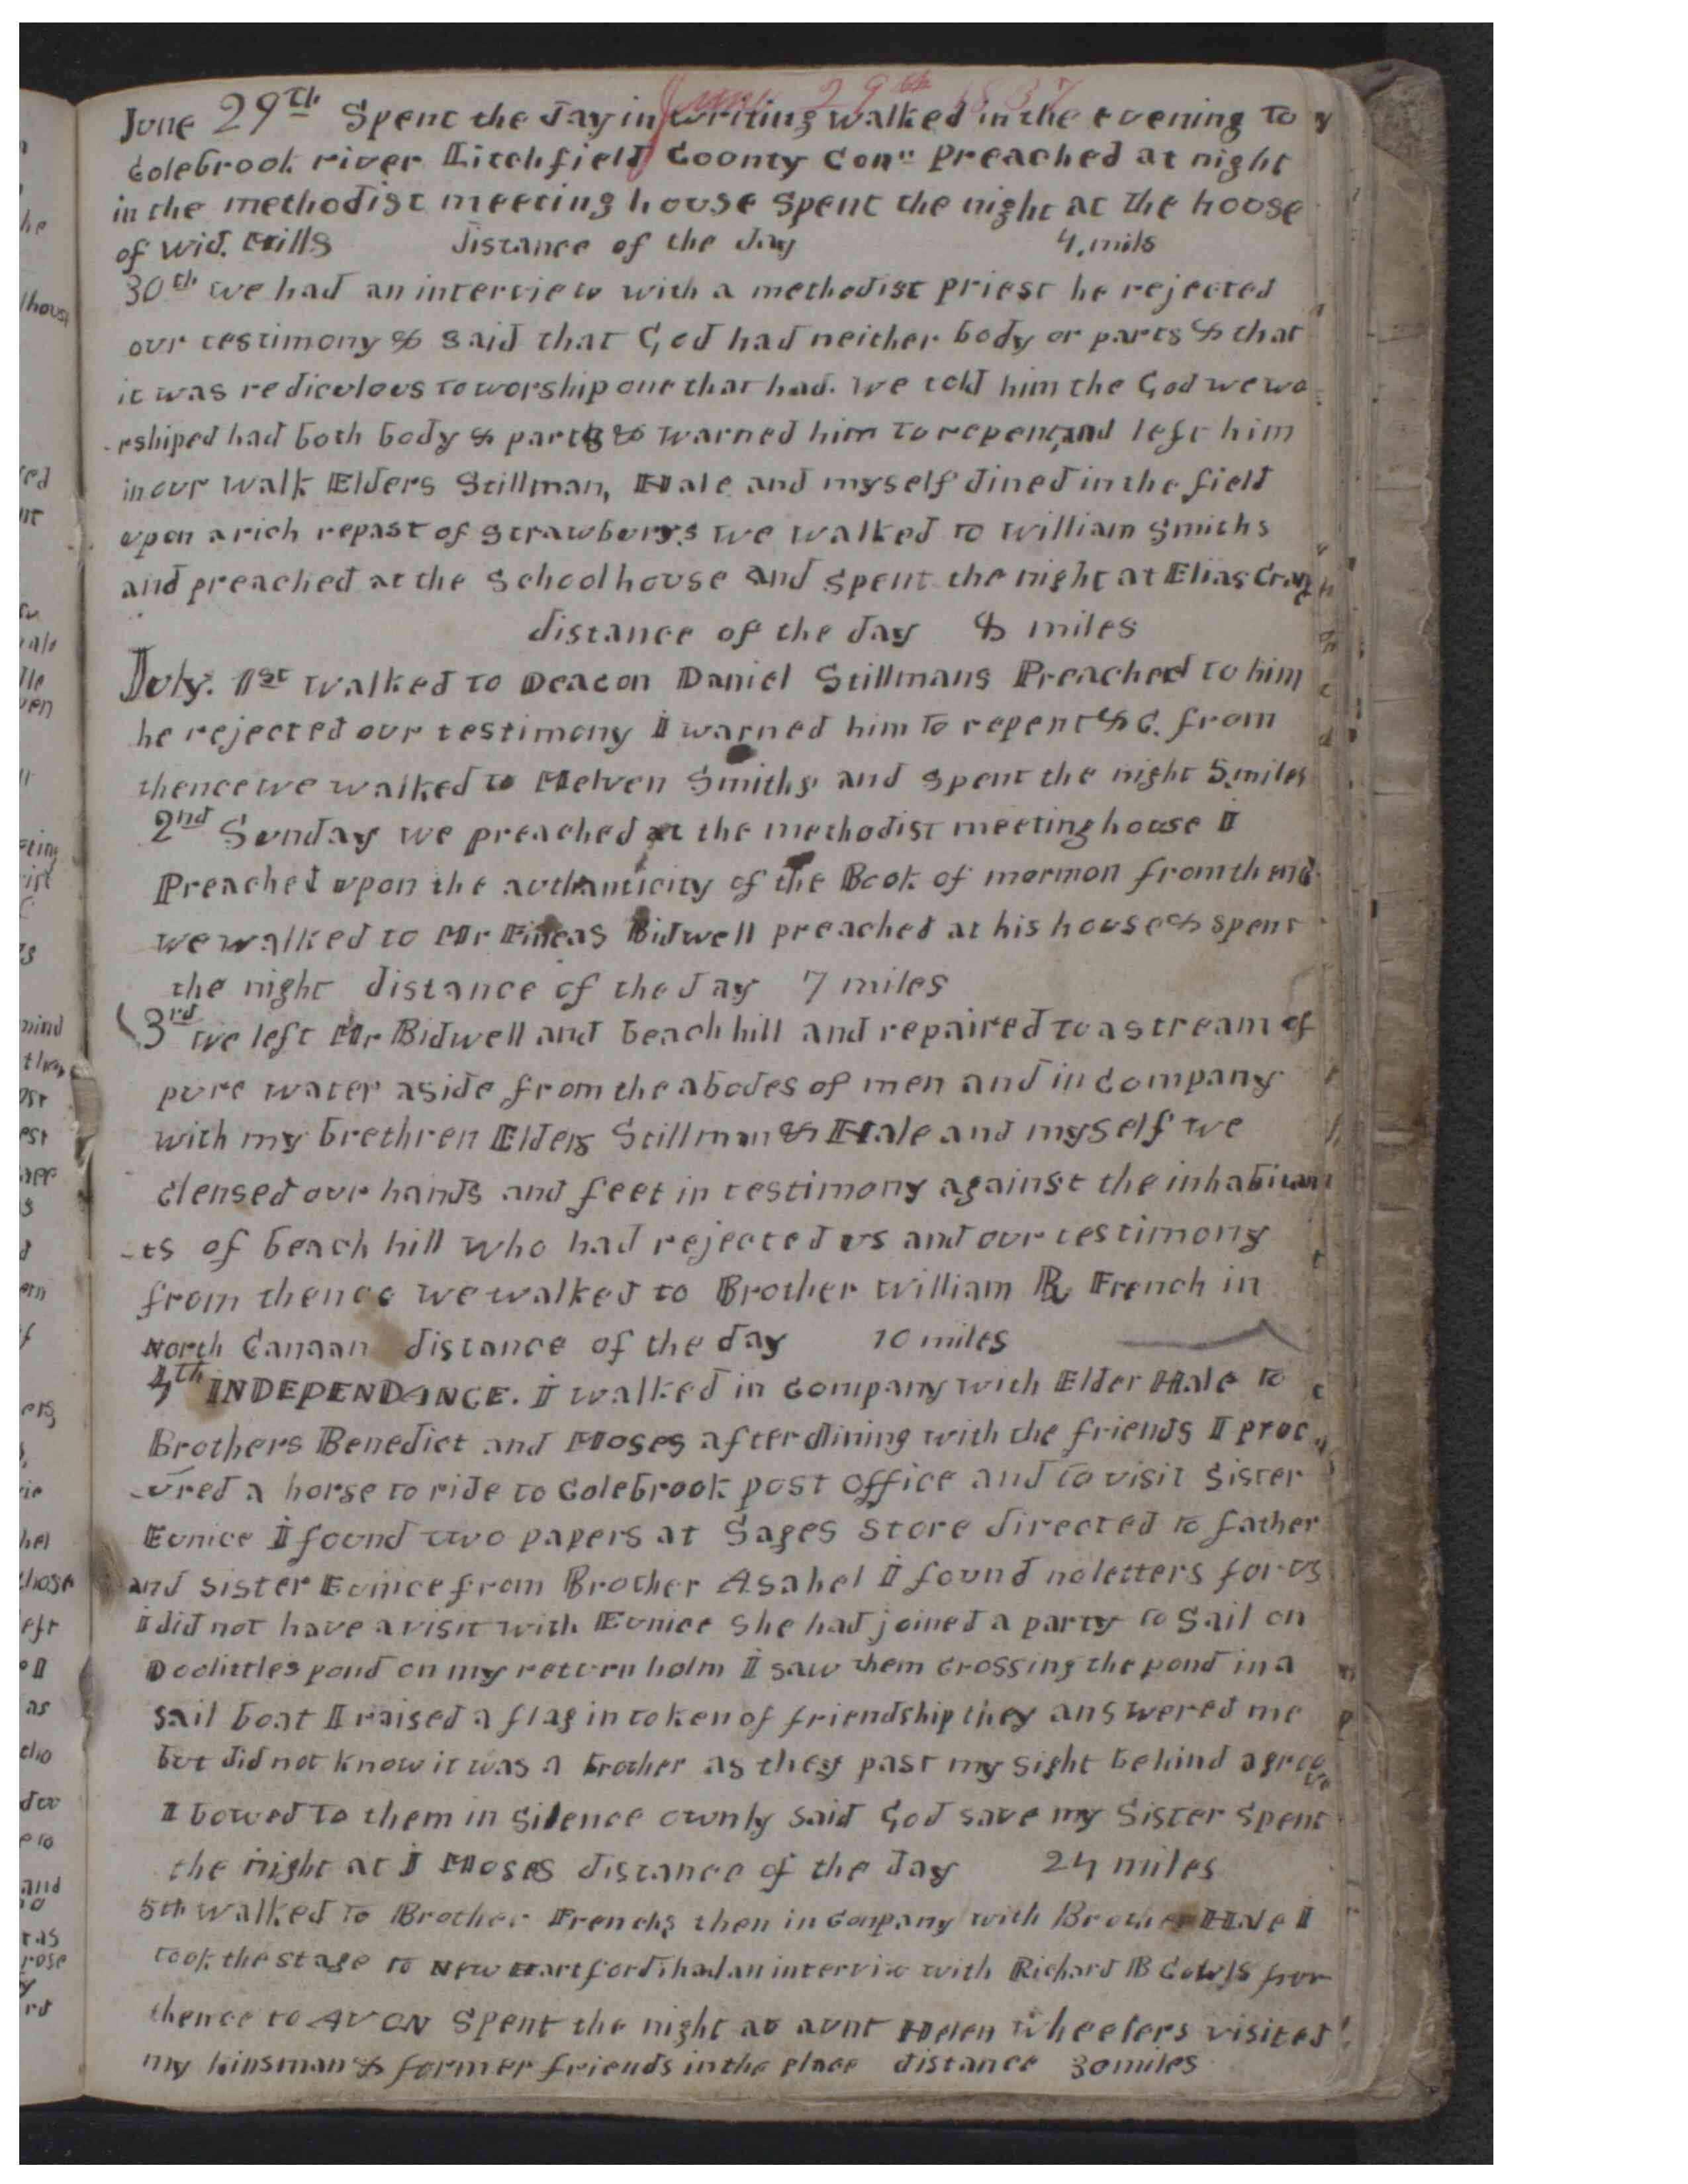 June 29th 1837
June 29th Spent the day in writing walked in the evening to
Colebrook river Litchfield County Con" Preached at night
in the methodist meeting house Spent the night at the house
of Wid. Mills distance of the day 4. mils
30th we had an interview with a methodist priest he rejected
our testimony & said that God had neither body or parts & that
it was rediculous to worship one that had. we told him the God we wo
-rshiped had both body & parts & warned him to repent and left him
in our walk Elders Stillman, Hale and myself dined in the field
upon a rich repast of strawburys we walked to William Smiths
and preached at the School house and Spent the night at Elias Cray
distance of the day 8 miles
July. 1st walked to Deacon Daniel Stillmans Preached to him
he rejected our testimony I warned him to repent &c. from
thence we walked to Melven Smiths and spent the night 5 miles
2nd Sunday we preached at the methodist meeting house I
Preached upon the authanticity of the Book of mormon from thence
we walked to Mr Fineas Bidwell preached at his house & spent
the night distance of the day 7 miles
3rd we left Mr Bidwell and beach hill and repaired to a stream of
pure water aside from the abodes of men and in company
with my brethren Elders Stillman & Hale and myself we
clensed our hands and feet in testimony against the inhabitan
-ts of beach hill who had rejected us and our testimony
from thence we walked to Brother William R French in
North Canaan distance of the day 10 miles
4th INDEPENDANCE. I walked in company with Elder Hale to
Brothers Benedict and Moses after dining with the friends I proc
-ured a horse to ride to Colebrook post office and to visit Sister
Eunice I found two papers at Sages Store directed to father
and sister Eunice from Brother Asahel I found no letters for us
I did not have a visit with Eunice She had joined a party to Sail on
Doolittles pond on my return holm I saw them crossing the pond in a
sail boat I raised a flag in token of friendship they answered me
but did not know it was a brother as they past my sight behind a grove
I bowed to them in silence ownly said God save my Sister Spent
the night at I Moses distance of the day 24 miles
5th walked to Brother Frenchs then in company with Brother Hale I
took the stage to New Hartford i had an interview with Richard B Cowls from
thence to AVON Spent the night at aunt Helen Wheelers visited
my kinsman & former friends in the place distance 30 miles